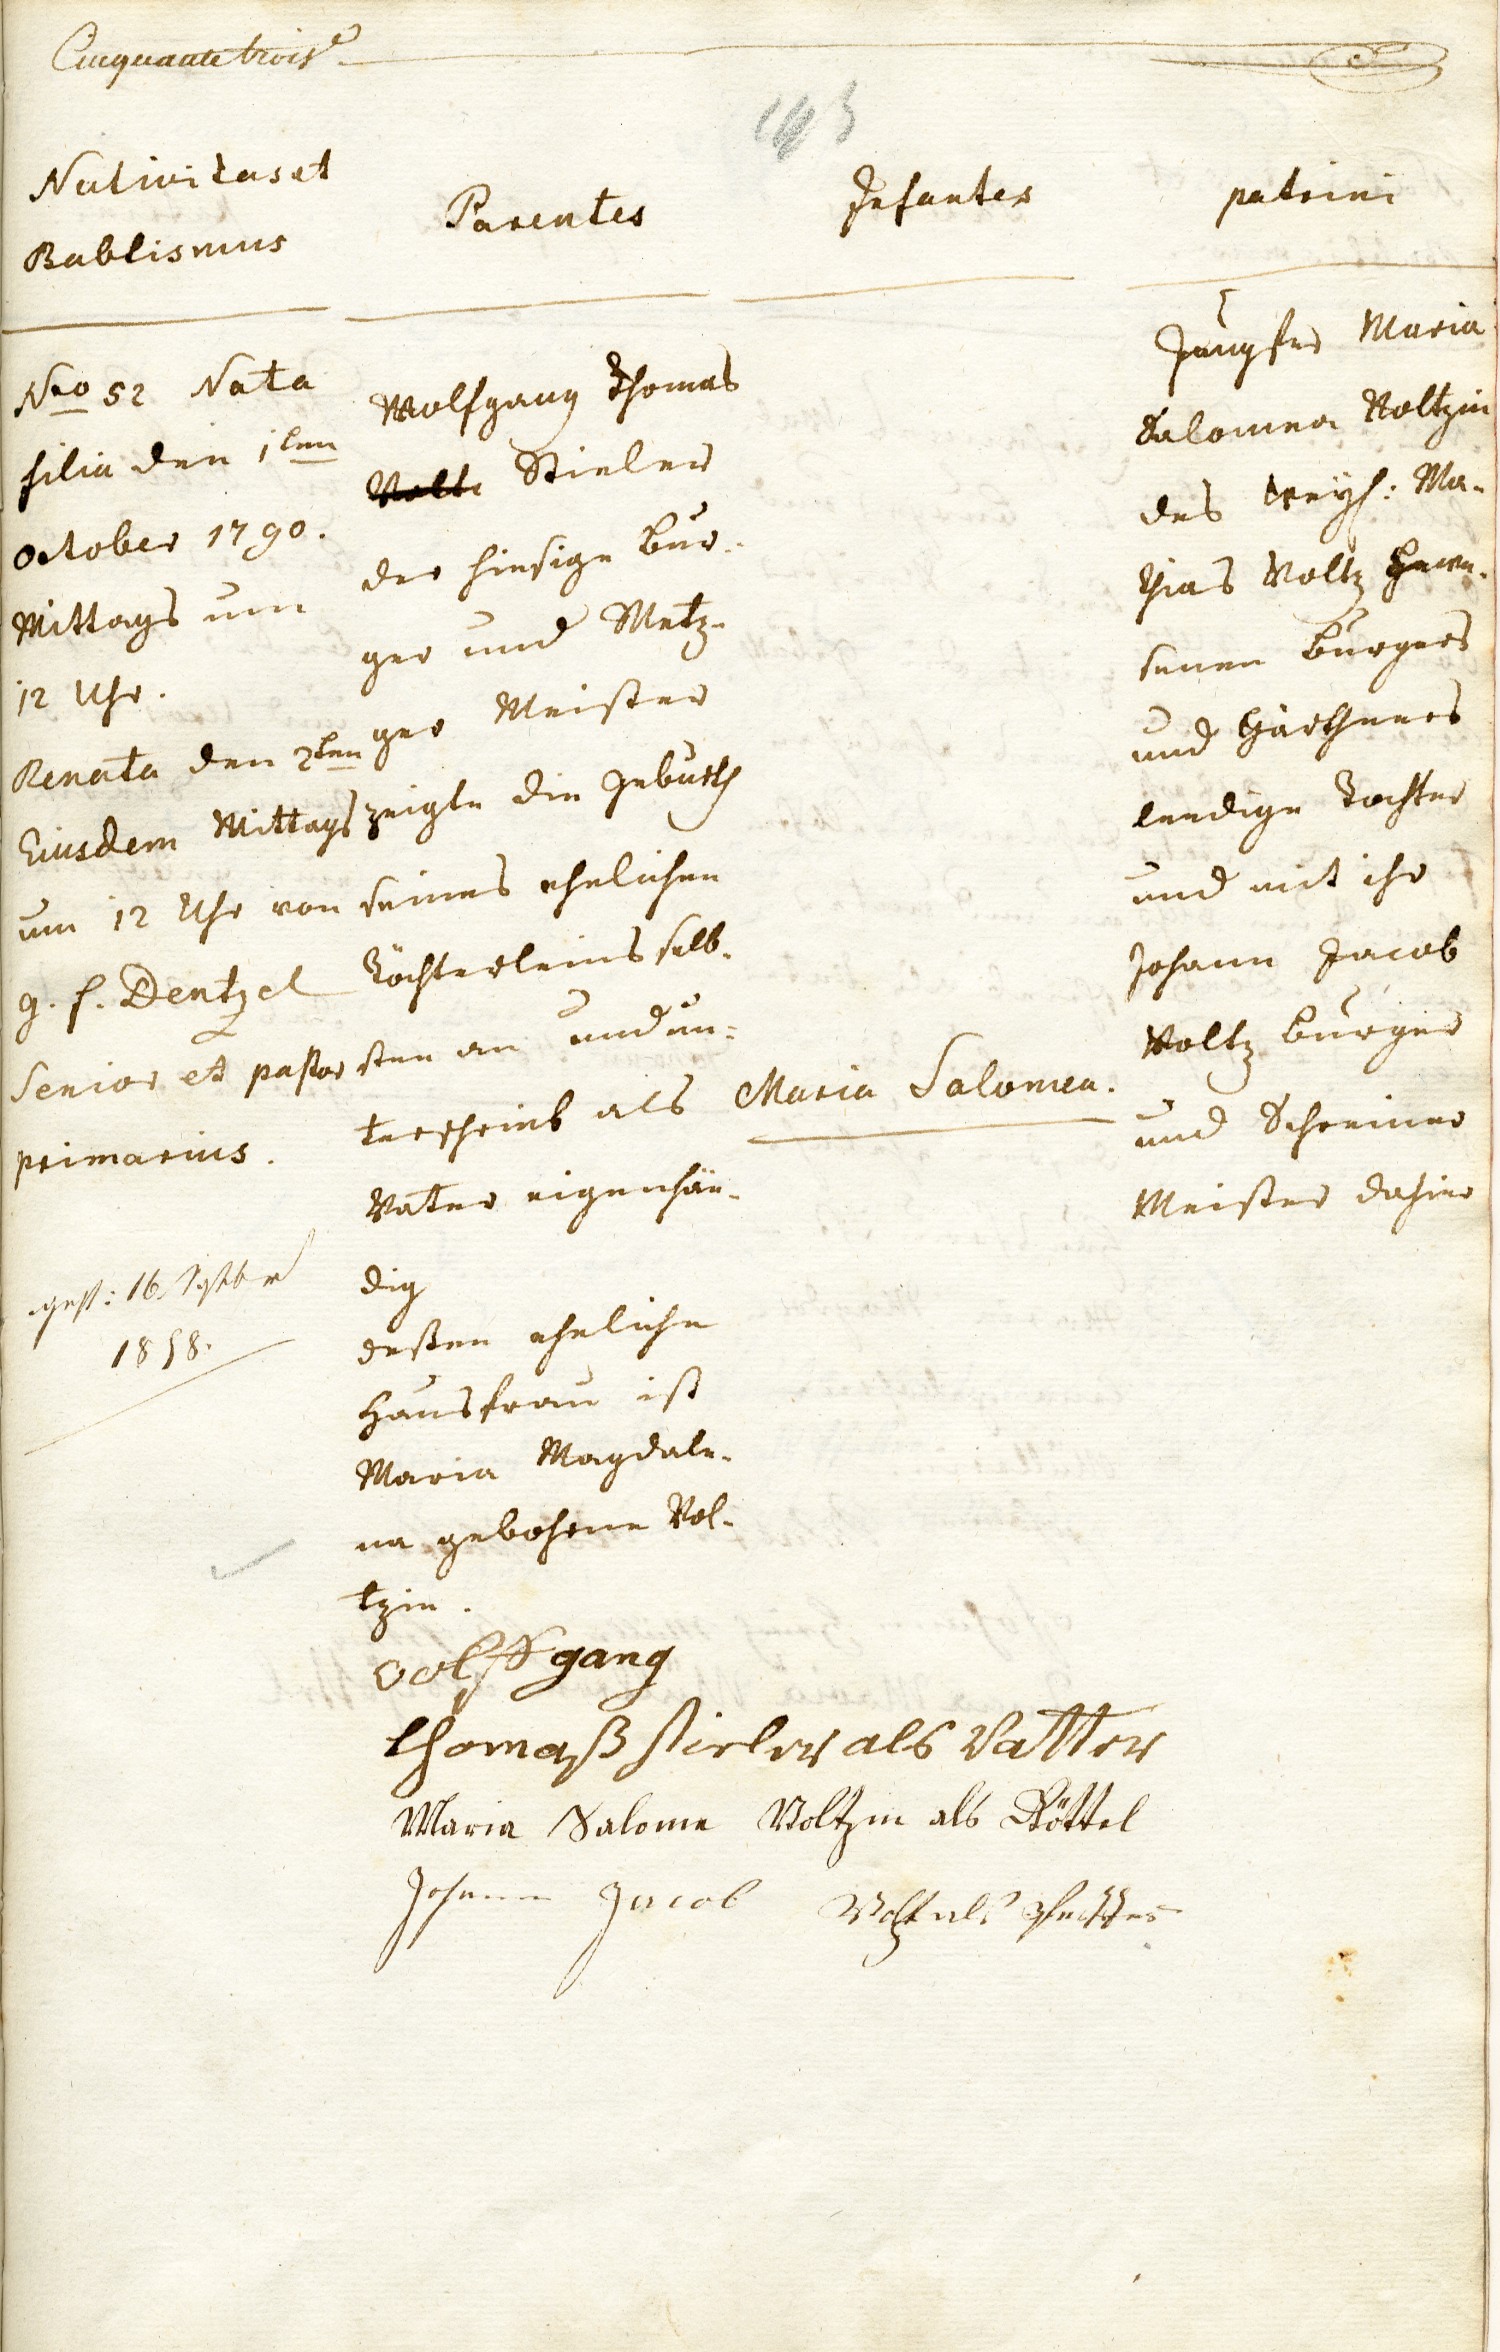 Cinquante trois
143
Nativitas et
Babtismus
Nro 52 Nata
filia den 1ten
October 1790.
Mittags um
12 Uhr.
Renata den 2ten
Eiusdem Mittags
um 12 Uhr von
g. f. Dentzel
Senior et pastor
primarius.
gest: 16. Septbr
1858.
Parentes
Wolfgang Thomas
Voltz Stieler
der hiesige Bur-
ger und Metz-
ger Meister
zeigte die Geburth
seines ehelichen
Töchterleins selb-
sten an und un-
terschrieb als
Vater eigenhän-
dig
deßen eheliche
Hausfrau ist
Maria Magdale-
na gebohrne Vol-
tzin.
Infantes
Maria Salomea.
patrini
Jungfer Maria
Salomea Voltzin
des weyl: Ma-
thias Voltz gewe-
senen Burgers
und Gärthners
leedige Tochter
und mit ihr
Johann Jacob
Voltz Burger
und Schreiner
Meister dahier
volffgang
thomaß stieler als Vatter
Maria Salome Voltzin als Göttel
Johann Jacob Voltz als Pfetter